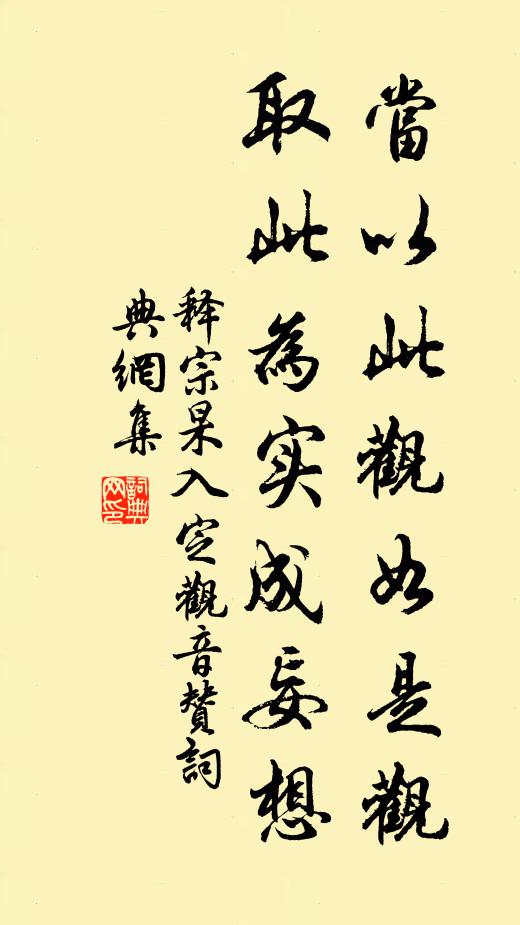 當以此觀如是觀
取此為实成妄想
释宗杲入定觀音贊詞
典網集
詞典网印